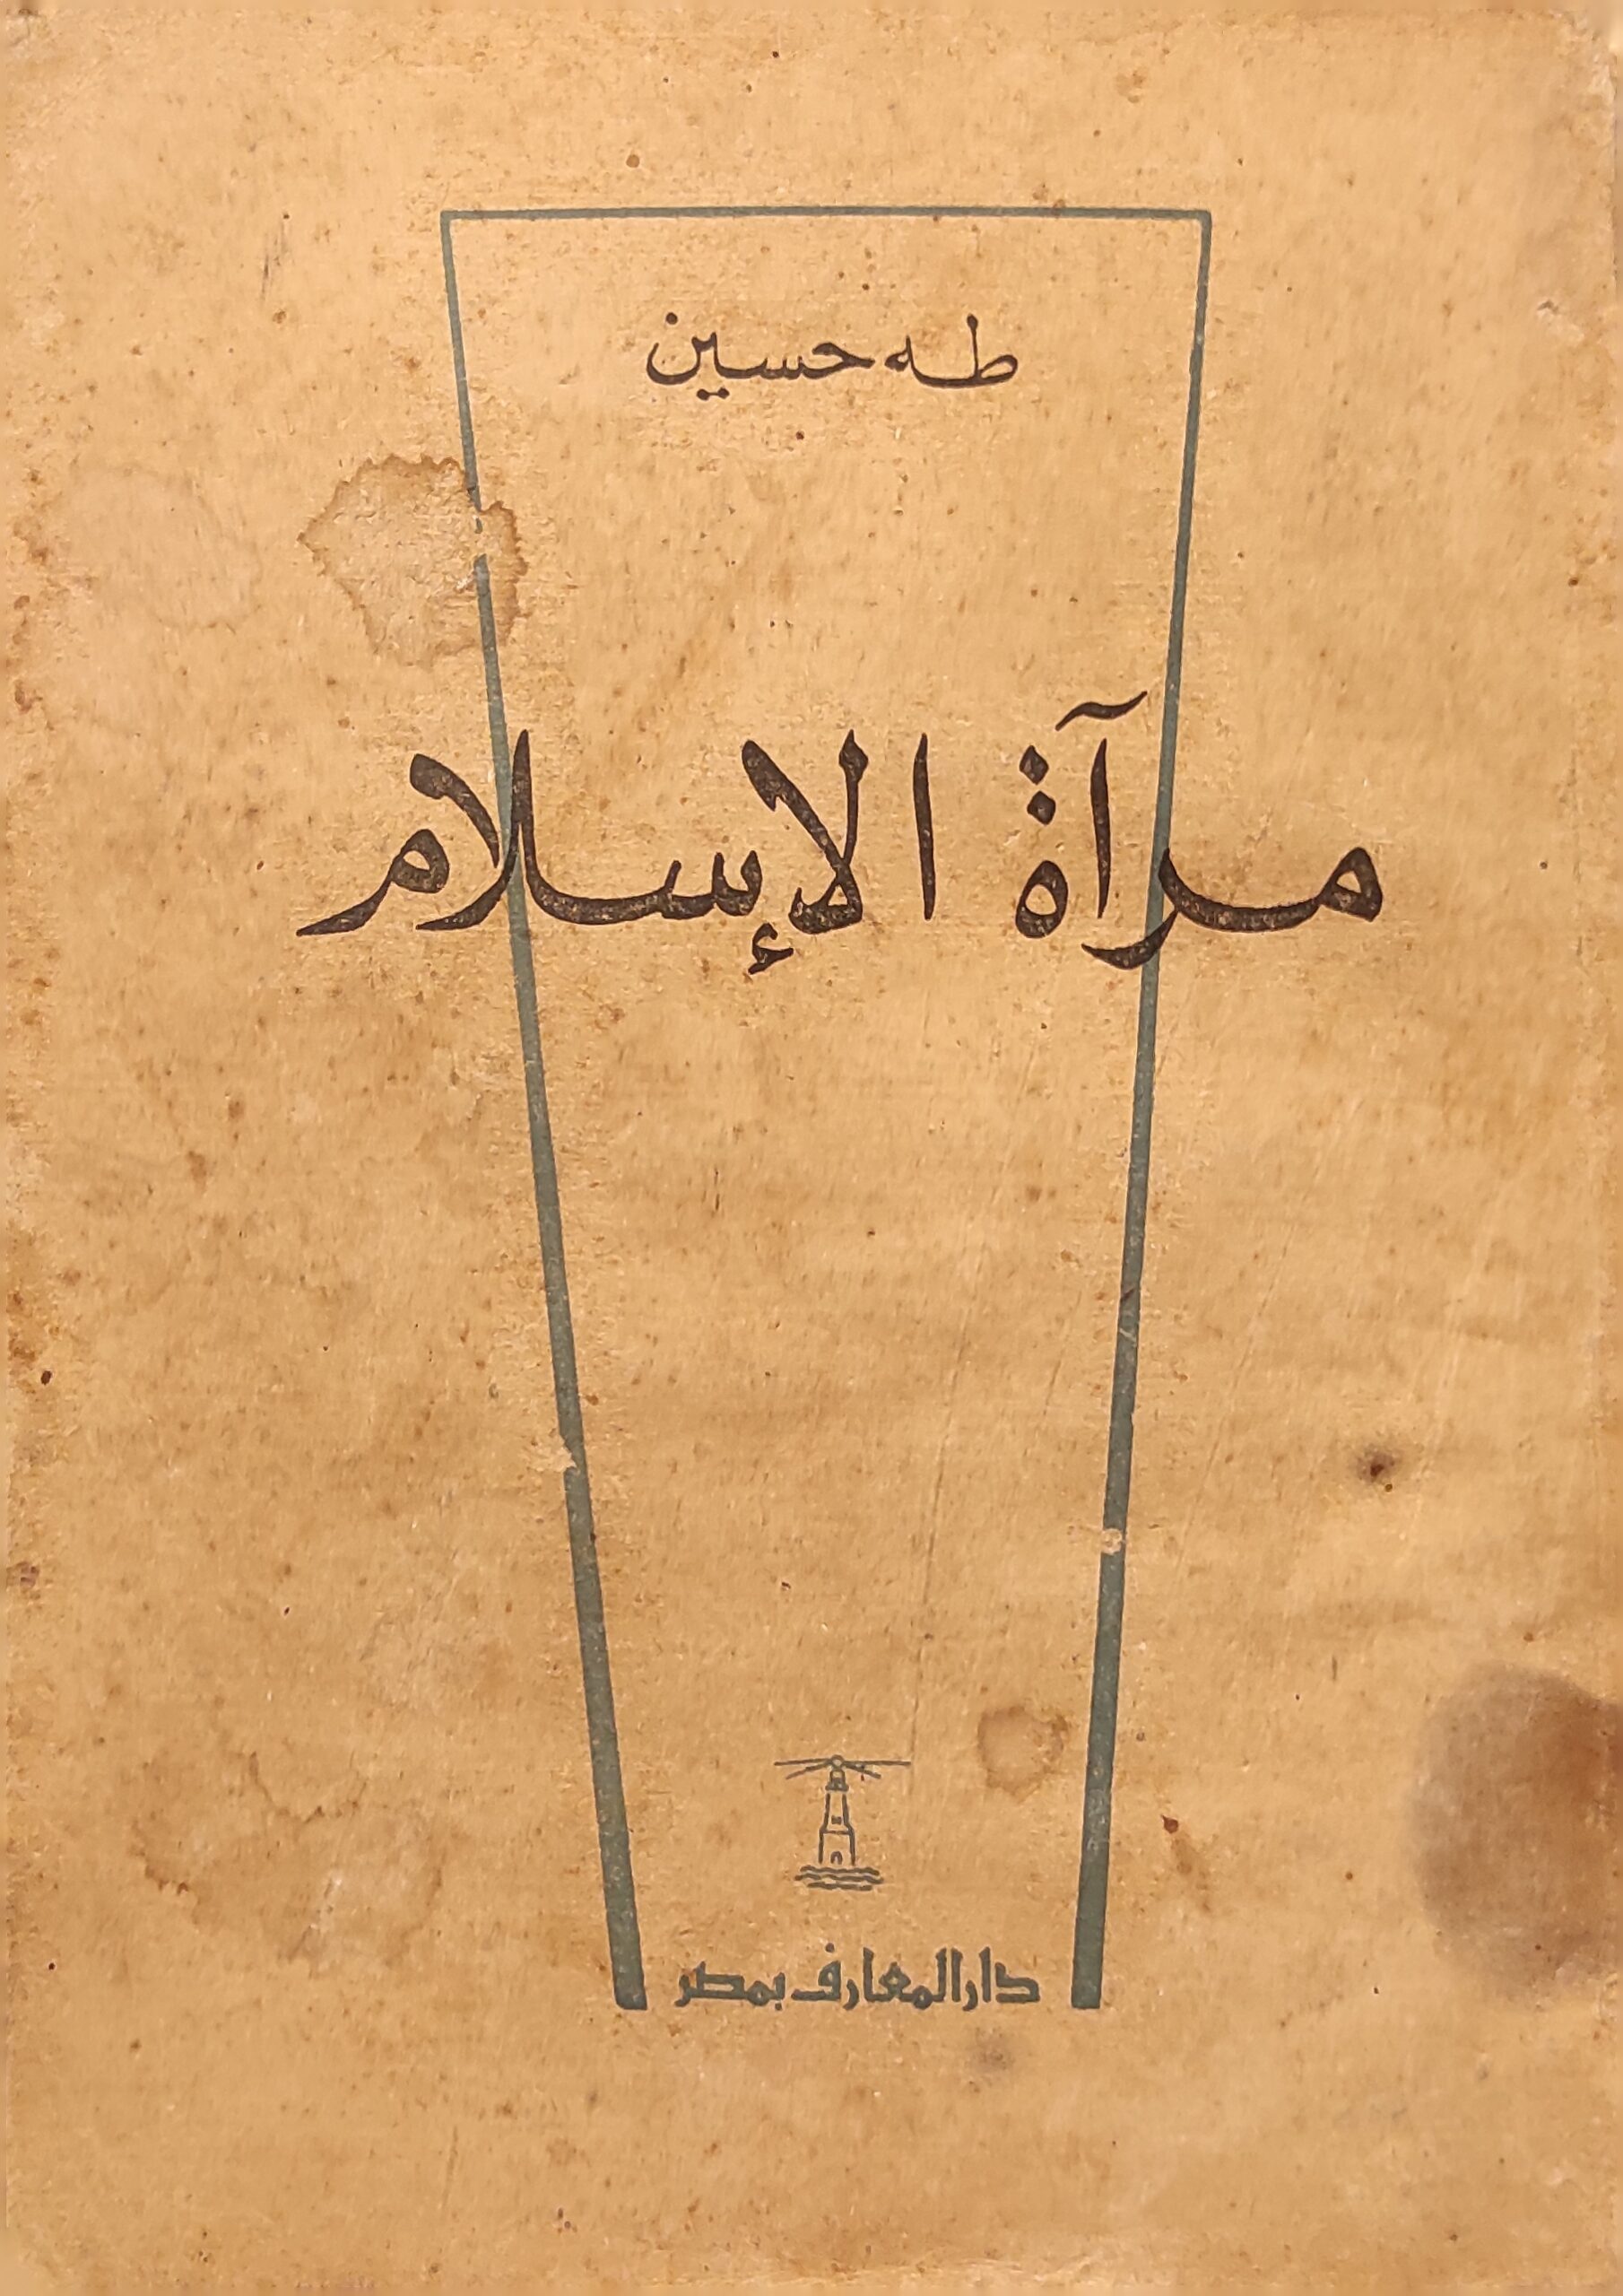 طه حسين
مرآة الإسلام
دار المعارف بمصر